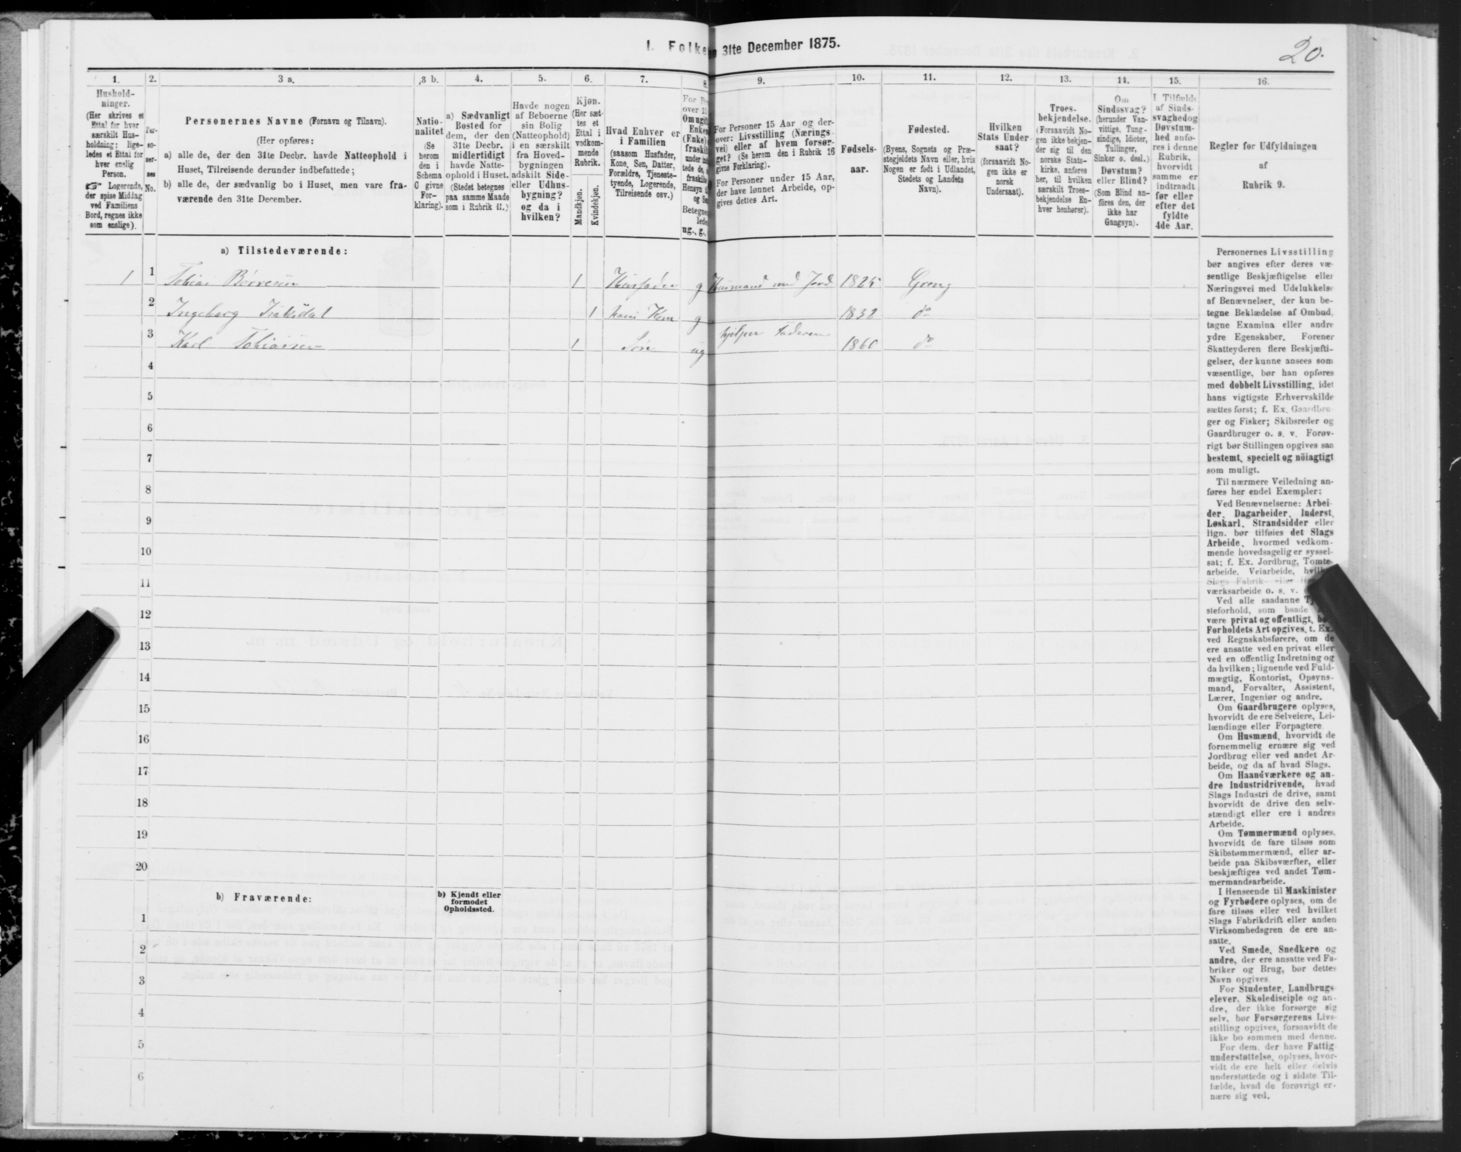 I. Folke
31te December 1875.
20.
1. 2. 3 a. 3 b. 4. 5. 6. 7. 8. 9. 10. 11. 12. 13. 14. 15. 16.
Hushold-
ninger.
(Her skrives et
Ettal for hver
særskilt Hus-
holdning; lige-
ledes et Ettal for
hver enslig
Person.
☞ Logerende,
der spise Middag
ved Familiens
Bord, regnes ikke
som enslige).
Per-
so-
ner-
nes
No.
Personernes Navne (Fornavn og Tilnavn).
(Her opføres:
a) alle de, der den 31te Decbr. havde Natteophold i
Huset, Tilreisende derunder indbefattede;
b) alle de, der sædvanlig bo i Huset, men vare fra-
værende den 31te December.
Natio-
nalitet
(Se
herom
den i
Schema
O givne
For-
klaring).
a) Sædvanligt
Bosted for
dem, der den
31te Decbr.
midlertidigt
havde Natte-
ophold i Huset.
(Stedet betegnes
paa samme Maade
som i Rubrik 11.)
Havde nogen
af Beboerne
sin Bolig
(Natteophold)
i en særskilt
fra Hoved-
bygningen
adskilt Side-
eller Udhus-
bygning?
og da i
hvilken?
Kjøn.
(Her sæt-
tes et
Ettal i
vedkom-
mende
Rubrik.
Mandkjøn.
Kvindekjøn.
Hvad Enhver er
i Familien
(saasom Husfader,
Kone, Søn, Datter,
Forældre, Tjeneste-
tyende, Logerende,
Tilreisende osv.)
For Personer 15 Aar og der-
over: Livsstilling (Nærings-
vei) eller af hvem forsør-
get? (Se herom den i Rubrik 16
givne Forklaring).
For Personer under 15 Aar,
der have lønnet Arbeide, op-
gives dettes Art.
Fødsels-
aar.
Fødested.
(Byens, Sognets og Præ-
stegjeldets Navn eller, hvis
Nogen er født i Udlandet,
Stedets og Landets
Navn).
Hvilken
Stats Under-
saat?
(forsaavidt No-
gen ikke er
norsk
Undersaat).
Troes-
bekjendelse.
(Forsaavidt No-
gen ikke bekjen-
der sig til den
norske Stats-
kirke, anføres
her, til hvilken
særskilt Troes-
bekjendelse En-
hver henhører).
Om
Sindssvag?
(herunder Van-
vittige, Tung-
sindige, Idioter,
Tullinger,
Sinker o. desl.)
Døvstum?
eller Blind?
(Som Blind an-
føres den, der
ikke har
Gangsyn).
I Tilfælde
af Sinds-
svaghed og
Døvstum-
hed anfø-
res i denne
Rubrik,
hvorvidt
samme er
indtraadt
før eller
efter det
fyldte
4de Aar.
Regler for Udfyldningen
af
Rubrik 9.
a) Tilstedeværende:
1 1 Tobias Børresen 1 Husfader g Husmand med Jord 1825
2 Ingeborg 1 hans Kone g 1838 do
3 Karl Tobiassen 1 Søn ug hjelper Faderen 1860 do
4
5
6
7
8
9
10
11
12
13
14
15
16
17
18
19
20
b) Fraværende:
b) Kjendt eller
formodet
Opholdssted.
1
2
3
4
5
6
Personernes Livsstilling
bør angives efter deres væ-
sentlige Beskjæftigelse eller
Næringsvei med Udelukkelse
af Benævnelser, der kun be-
tegne Beklædelse af Ombud,
tagne Examina eller andre
ydre Egenskaber. Forener
Skatteyderen flere Beskjæfti-
gelser, der kunne ansees som
væsentlige, bør han opføres
med dobbelt Livsstilling, idet
hans vigtigste Erhvervskilde
sættes først; f. Ex. Gaardbru-
ger og Fisker; Skibsreder og
Gaardbruger o. s. v. Forøv-
rigt bør Stillingen opgives saa
bestemt, specielt og nöiagtigt
som muligt.
Til nærmere Veiledning an-
føres her endel Exempler:
Ved Benævnelserne: Arbei-
der, Dagarbeider, Inderst,
Løskarl, Strandsidder eller
lign. bør tilføies det Slags
Arbeide, hvormed vedkom-
mende hovedsagelig er syssel-
sat; f. Ex. Jordbrug, Tomte-
arbeide, Veiarbeide,
værksarbeide o. s. v.
Ved alle saadanne
steforhold, som baade
være privat og offentligt,
Forholdets Art opgives, t. Ex.
ved Regnskabsførere, om de
ere ansatte ved en privat eller
ved en offentlig Indretning og
da hvilken; lignende ved Fuld-
mægtig, Kontorist, Opsyns-
mand, Forvalter, Assistent,
Lærer, Ingeniør og andre.
Om Gaardbrugere oplyses,
hvorvidt de ere Selveiere, Lei-
lændinge eller Forpagtere.
Om Husmænd, hvorvidt de
fornemmelig ernære sig ved
Jordbrug eller ved andet Ar-
beide, og da af hvad Slags.
Om Haandværkere og an-
dre Industridrivende, hvad
Slags Industri de drive, samt
hvorvidt de drive den selv-
stændigt eller ere i andres
Arbeide.
Om Tømmermænd oplyses,
hvorvidt de fare tilsøs som
Skibstømmermænd, eller ar-
beide paa Skibsværfter, eller
beskjæftiges ved andet Tøm-
mermandsarbeide.
I Henseende til Maskinister
og Fyrbødere oplyses, om de
fare tilsøs eller ved hvilket
Slags Fabrikdrift eller anden
Virksomhedsgren de ere an-
satte.
Ved Smede, Snedkere og
andre, der ere ansatte ved Fa-
briker og Brug, bør dettes
Navn opgives.
For Studenter, Landbrugs-
elever, Skoledisciple og an-
dre, der ikke forsørge sig
selv, bør Forsørgerens Livs-
stilling opgives, forsaavidt de
ikke bo sammen med denne.
For dem, der have Fattig-
understøttelse, oplyses, hvor-
vidt de ere helt eller delvis
understøttede og i sidste Til-
fælde, hvad de forøvrigt er-
nære sig ved.